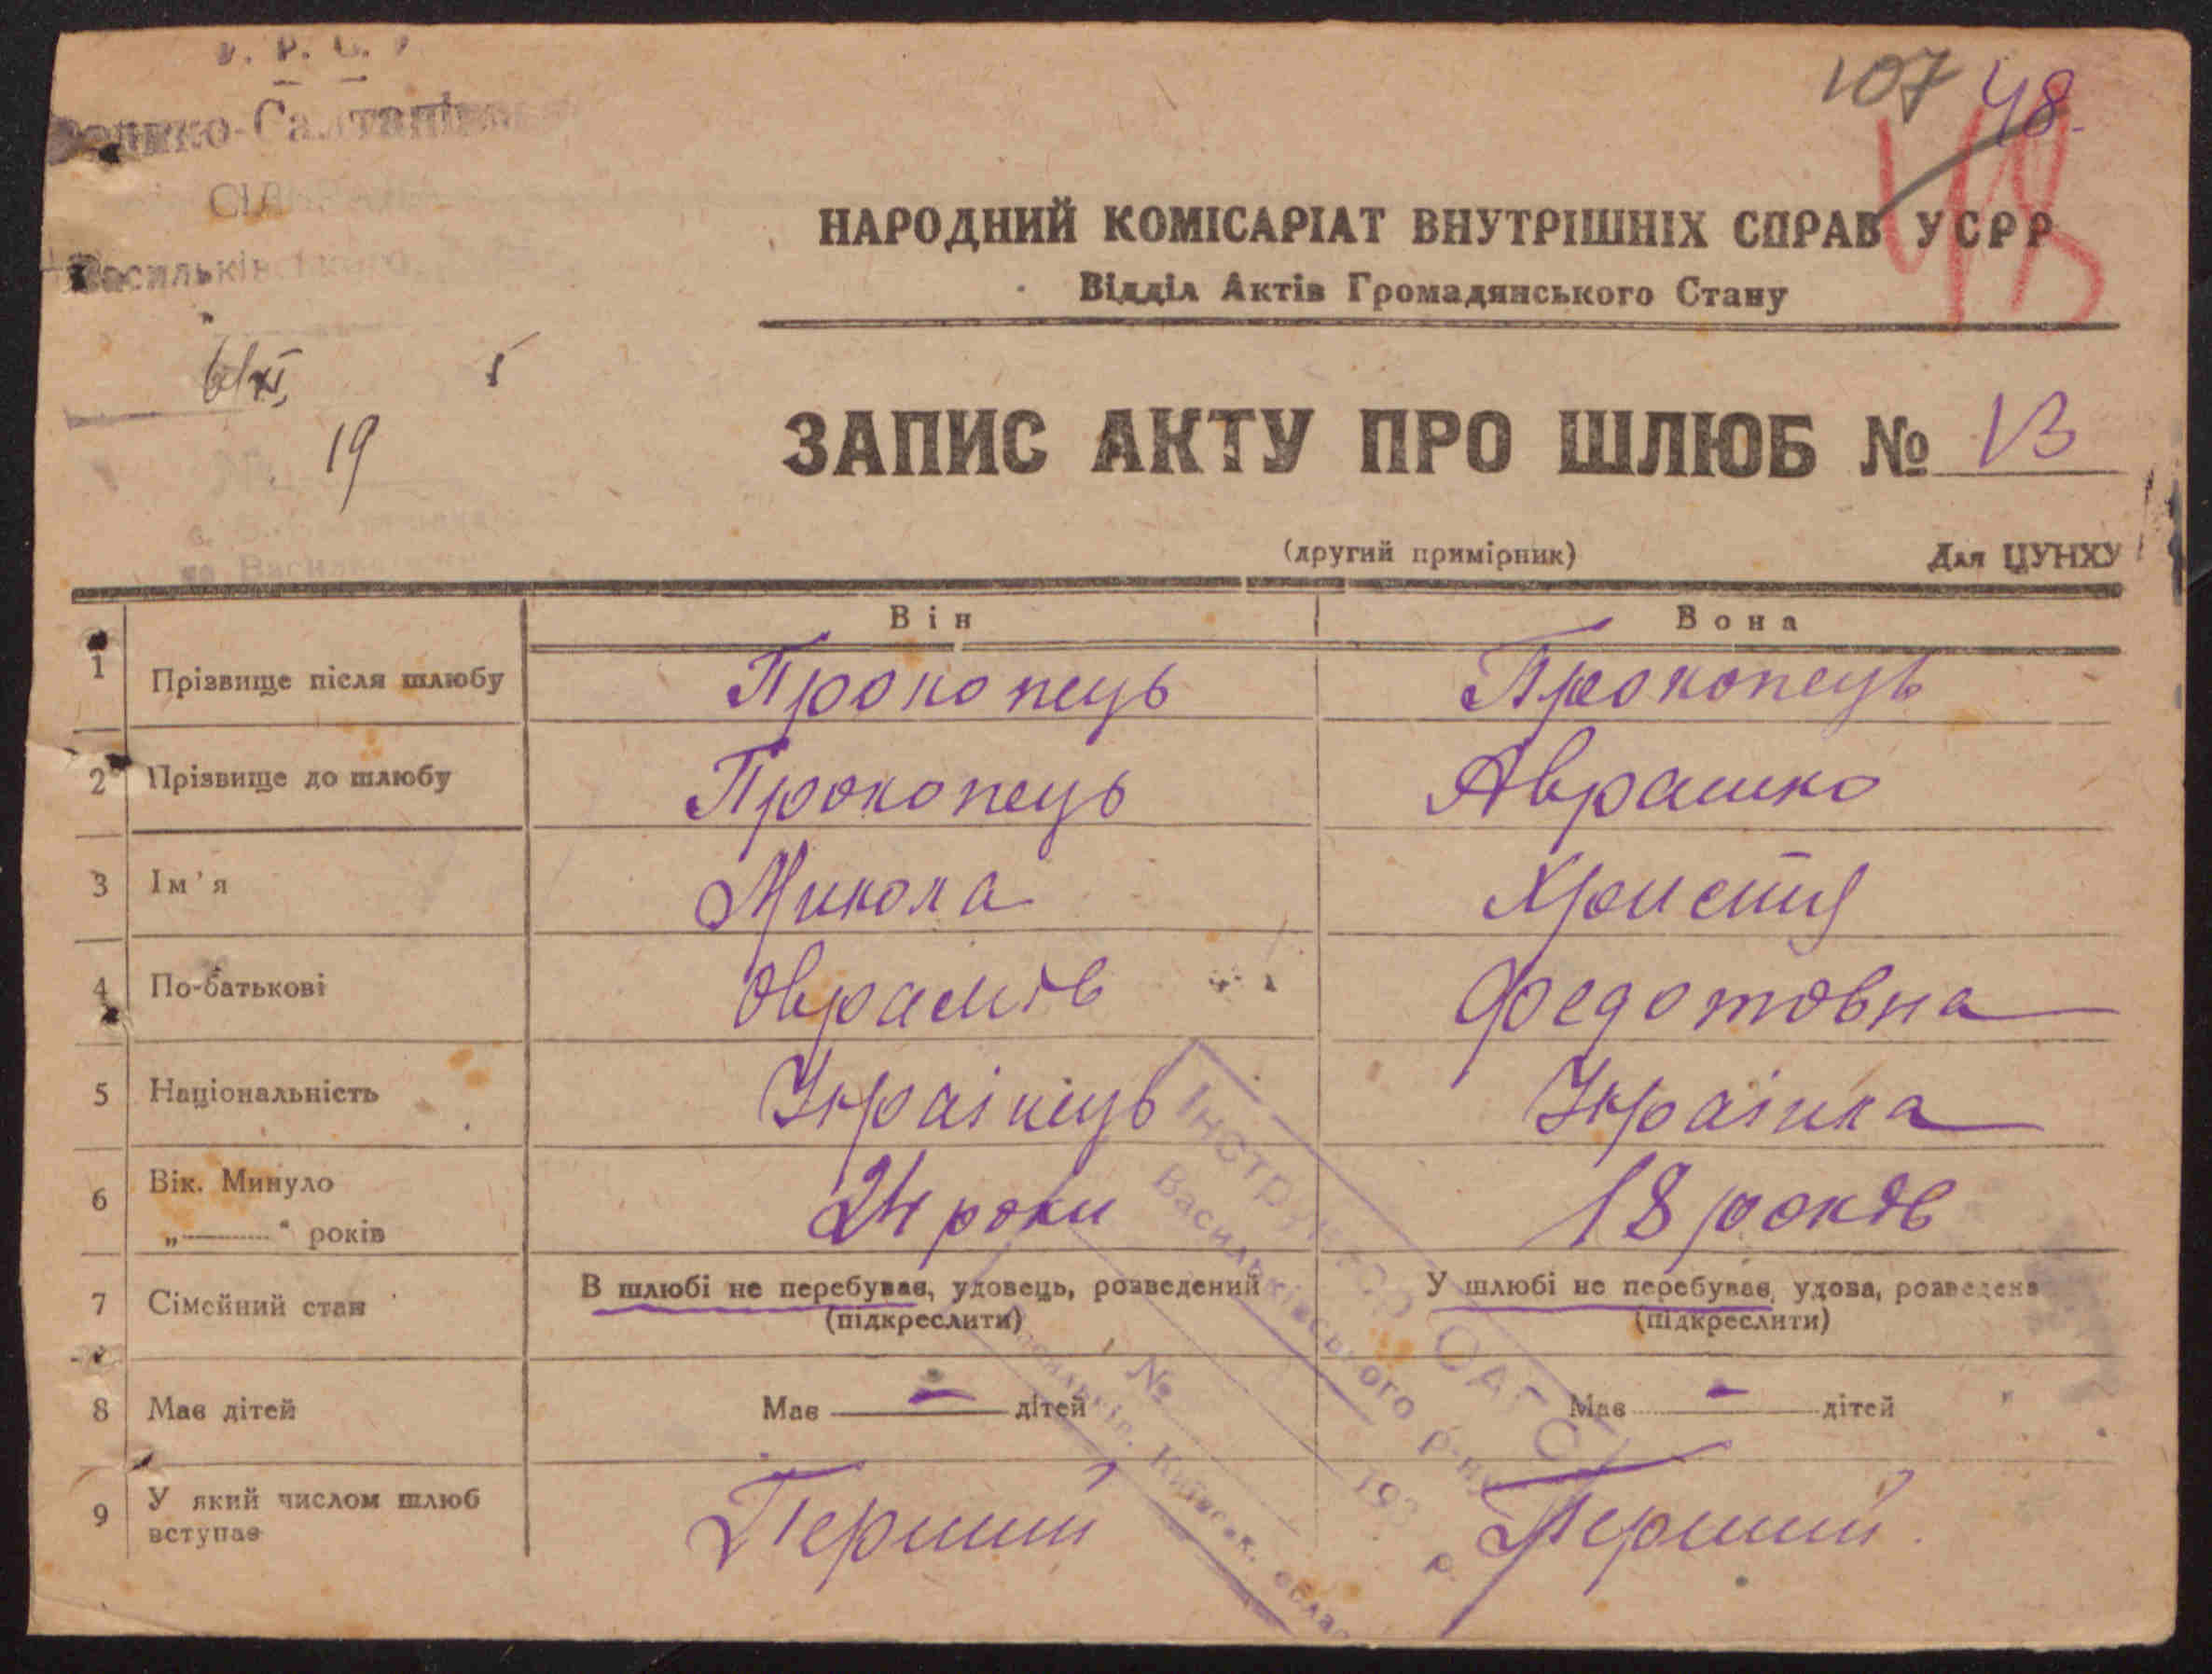 107 48.
48
Сіл
Васильківського
6/XI 5
№ 19
НАРОДНИЙ КОМІСАРІАТ ВНУТРІШНІХ СПРАВ УСРР
Відділ Актів Громадянського Стану
ЗАПИС АКТУ ПРО ШЛЮБ № 13
(другий примірник) Для ЦУНХУ
Він Вона
1 Прізвище після шлюбу Прокопець Прокопець
2 Прізвище до шлюбу Прокопець Аврашко
3 Ім'я Микола Христя
4 По-батькові Оврамів Федотовна
5 Національність Украінець Украінка
6 Вік. Минуло 24 роки 18 років
„ “ років
7 Сімейний стан В шлюбі не перебував, удовець, розведений У шлюбі не перебував, удова, розведена
(підкреслити) (підкреслити)
8 Має дітей Має — дітей Має — дітей
9 У який числом шлюб Перший Перший.
вступає
Інструктор ОАГС
Васильківського р-ну
№ 193 р.
Васильків, Київськ. област